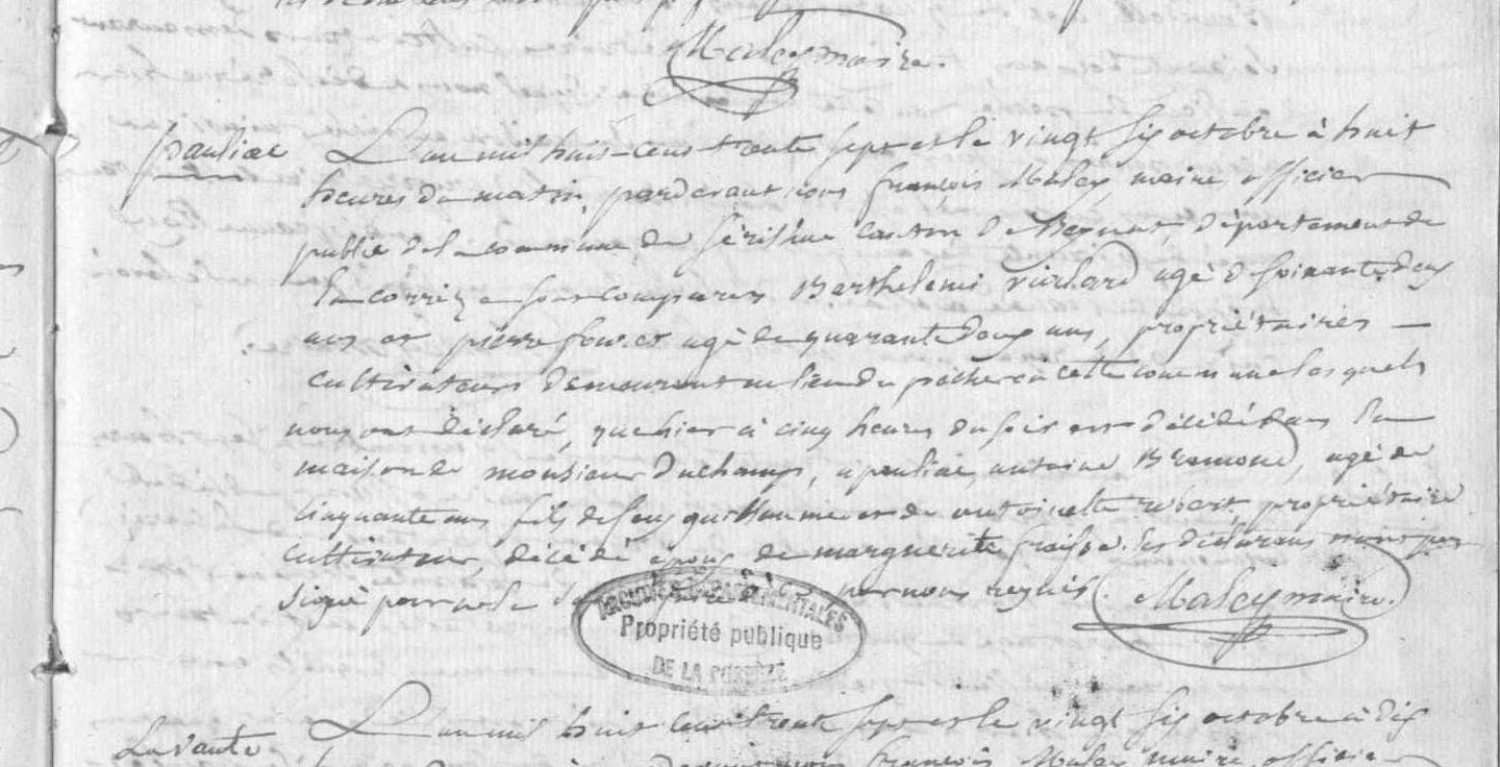 Maley maire.
pauliac L'an mil huit cent trente sept et le vingt six octobre à huit
heures du matin, pardevant nous françois Maley maire, officier
public de la commune de Sérilhac canton de Beynat, département de
la corrèze sont comparus Barthelemi vialard agé de soixante deux
ans et pierre agé de quarante deux ans, propriétaires
cultivateurs demeurant au lieu du pécher en cette commune lesquels
nous ont déclaré, que hier à cinq heures du soir est décédé dans la
maison de monsieur Duchamp, a pauliac, antoine Bremond, agé de
cinquante ans fils de feu guillaume et de antoinette robert, propriétaire
cultivateur, décédé époux de marguerite. les déclarans n'ont pas
signé pour ne le par nous requis. Maley maire.
ARCHIVES DÉPARTEMENTALES
Propriété publique
DE LA CORRÈZE
L'an mil huit cent trente sept et le vingt six octobre à dix
Lavaute
françois Maley maire, officier